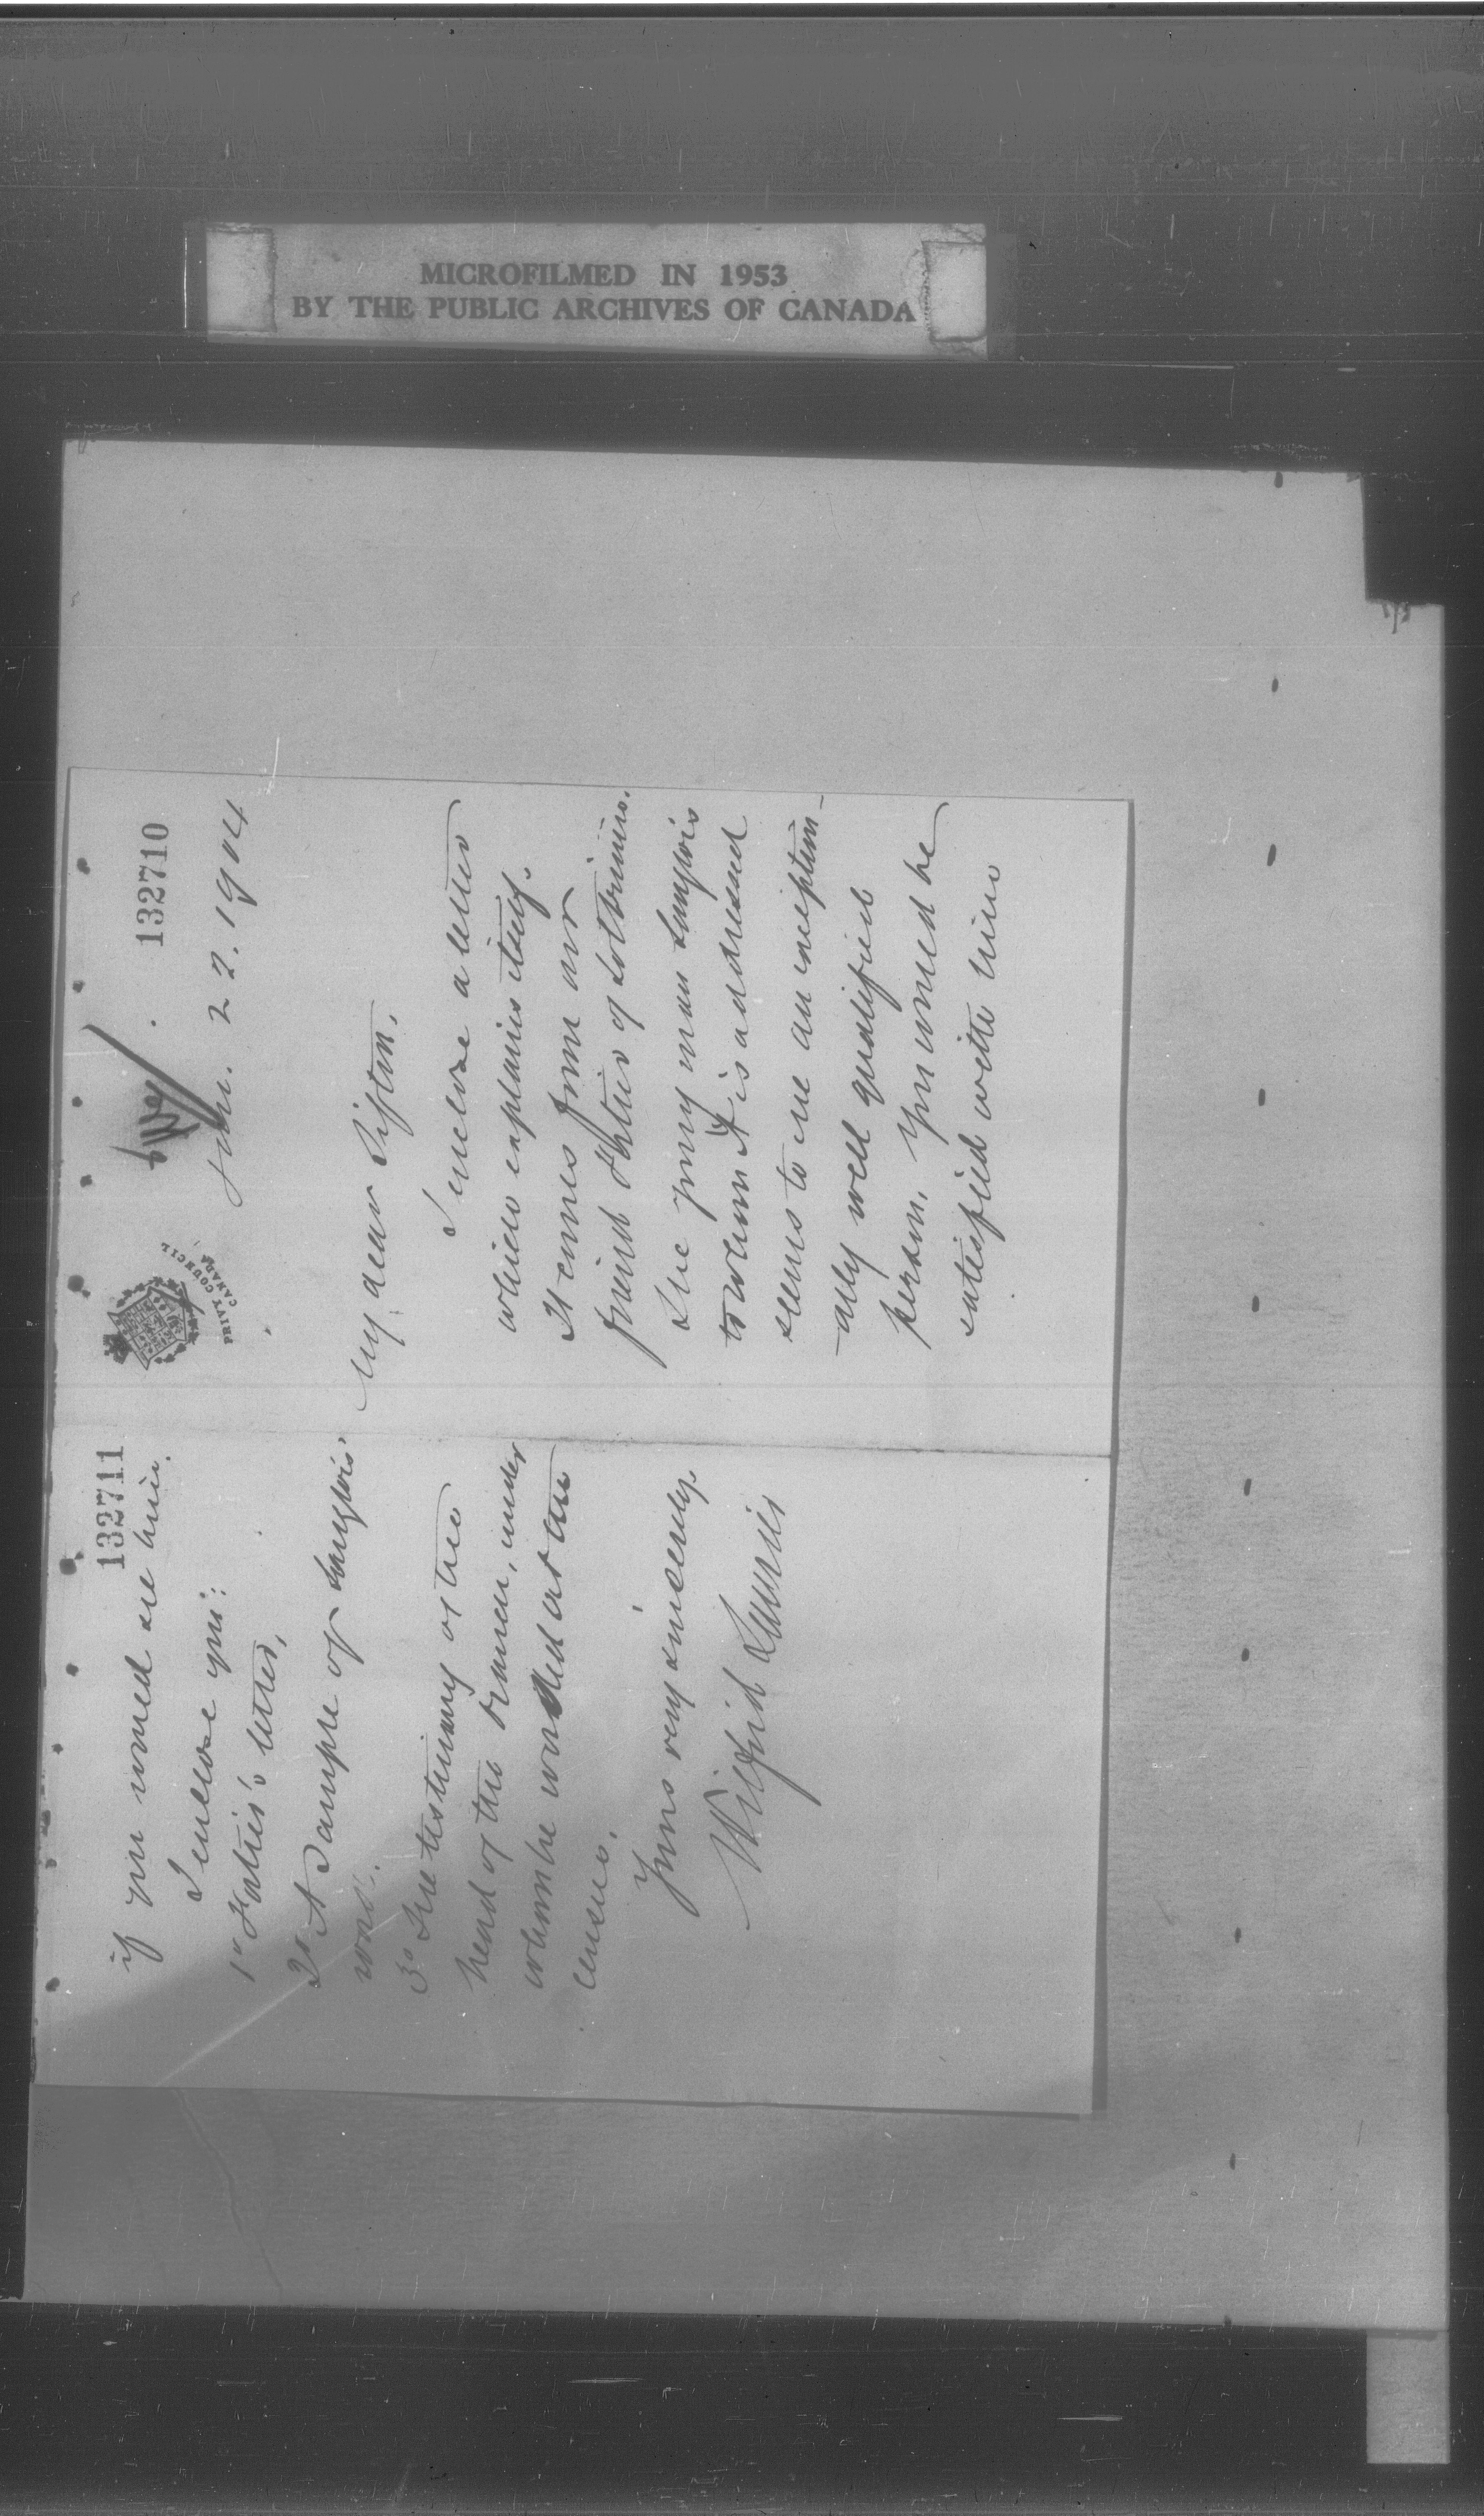 MICROFILMED IN 1953
BY THE PUBLIC ARCHIVES OF CANADA
132710
PRIVY COUNCIL
CANADA
Jan. 22. 1904
My dear Sifton,
I enclose a letter
which explains itself.
It comes from our
friend Fortier of Lotbinière.
The young man Langlois
to whom it is addressed
seems to me an exception-
ally well qualified
person. You would be
satisfied with him
132711
if you would see him.
I enclose you:
1° Fortier's letter,
2° A sample of Langlois'
work.
3° The testimony of the
head of the branch, under
whom he worked at the
census.
Yours very sincerely
Wilfrid Laurier